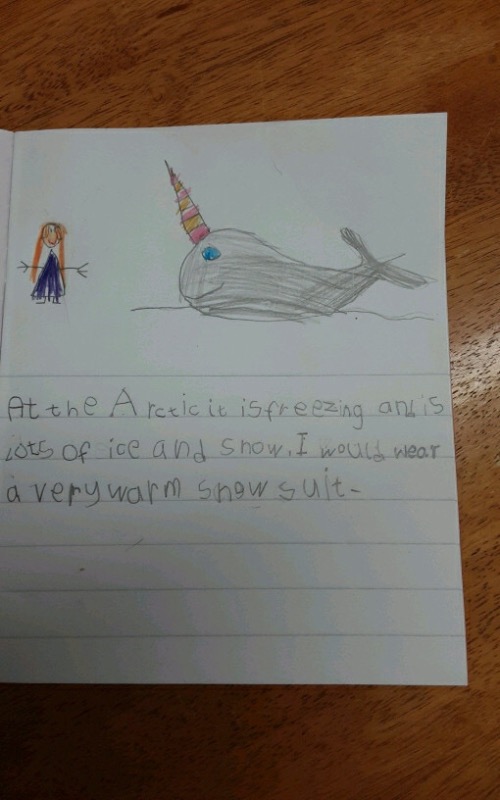 At the Arctic it is freezing and is
lots of ice and snow. I would wear
a very warm snow suit.